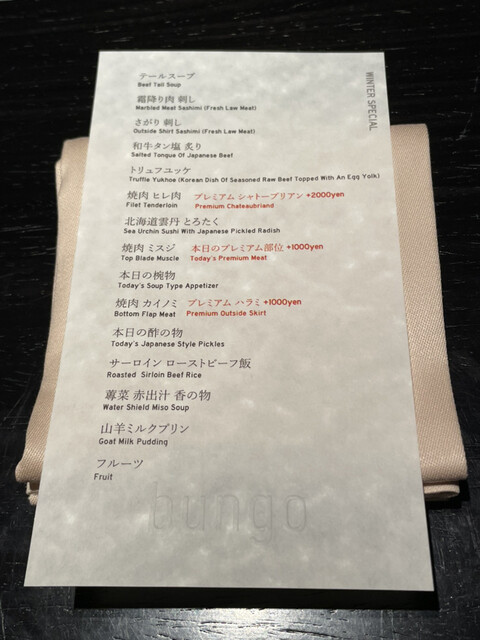 WINTER SPECIAL
テールスープ
Beef Tail Soup
霜降り肉 刺し
Marbled Meat Sashimi (Fresh Law Meat)
さがり 刺し
Outside Shirt Sashimi (Fresh Law Meat)
和牛タン塩 炙り
Salted Tongue Of Japanese Beef
トリュフユッケ
Truffle Yukhoe (Korean Dish Of Seasoned Raw Beef Topped With An Egg Yolk)
焼肉 ヒレ肉 プレミアム シャトーブリアン +2000yen
Filet Tenderloin Premium Chateaubriand
北海道雲丹 とろたく
Sea Urchin Sushi With Japanese Pickled Radish
焼肉 ミスジ 本日のプレミアム部位 +1000yen
Top Blade Muscle Today's Premium Meat
本日の椀物
Today's Soup Type Appetizer
焼肉 カイノミ プレミアム ハラミ +1000yen
Bottom Flap Meat Premium Outside Skirt
本日の酢の物
Today's Japanese Style Pickles
サーロイン ローストビーフ飯
Roasted Sirloin Beef Rice
蓴菜 赤出汁 香の物
Water Shield Miso Soup
山羊ミルクプリン
Goat Milk Pudding
フルーツ
Fruit
bungo